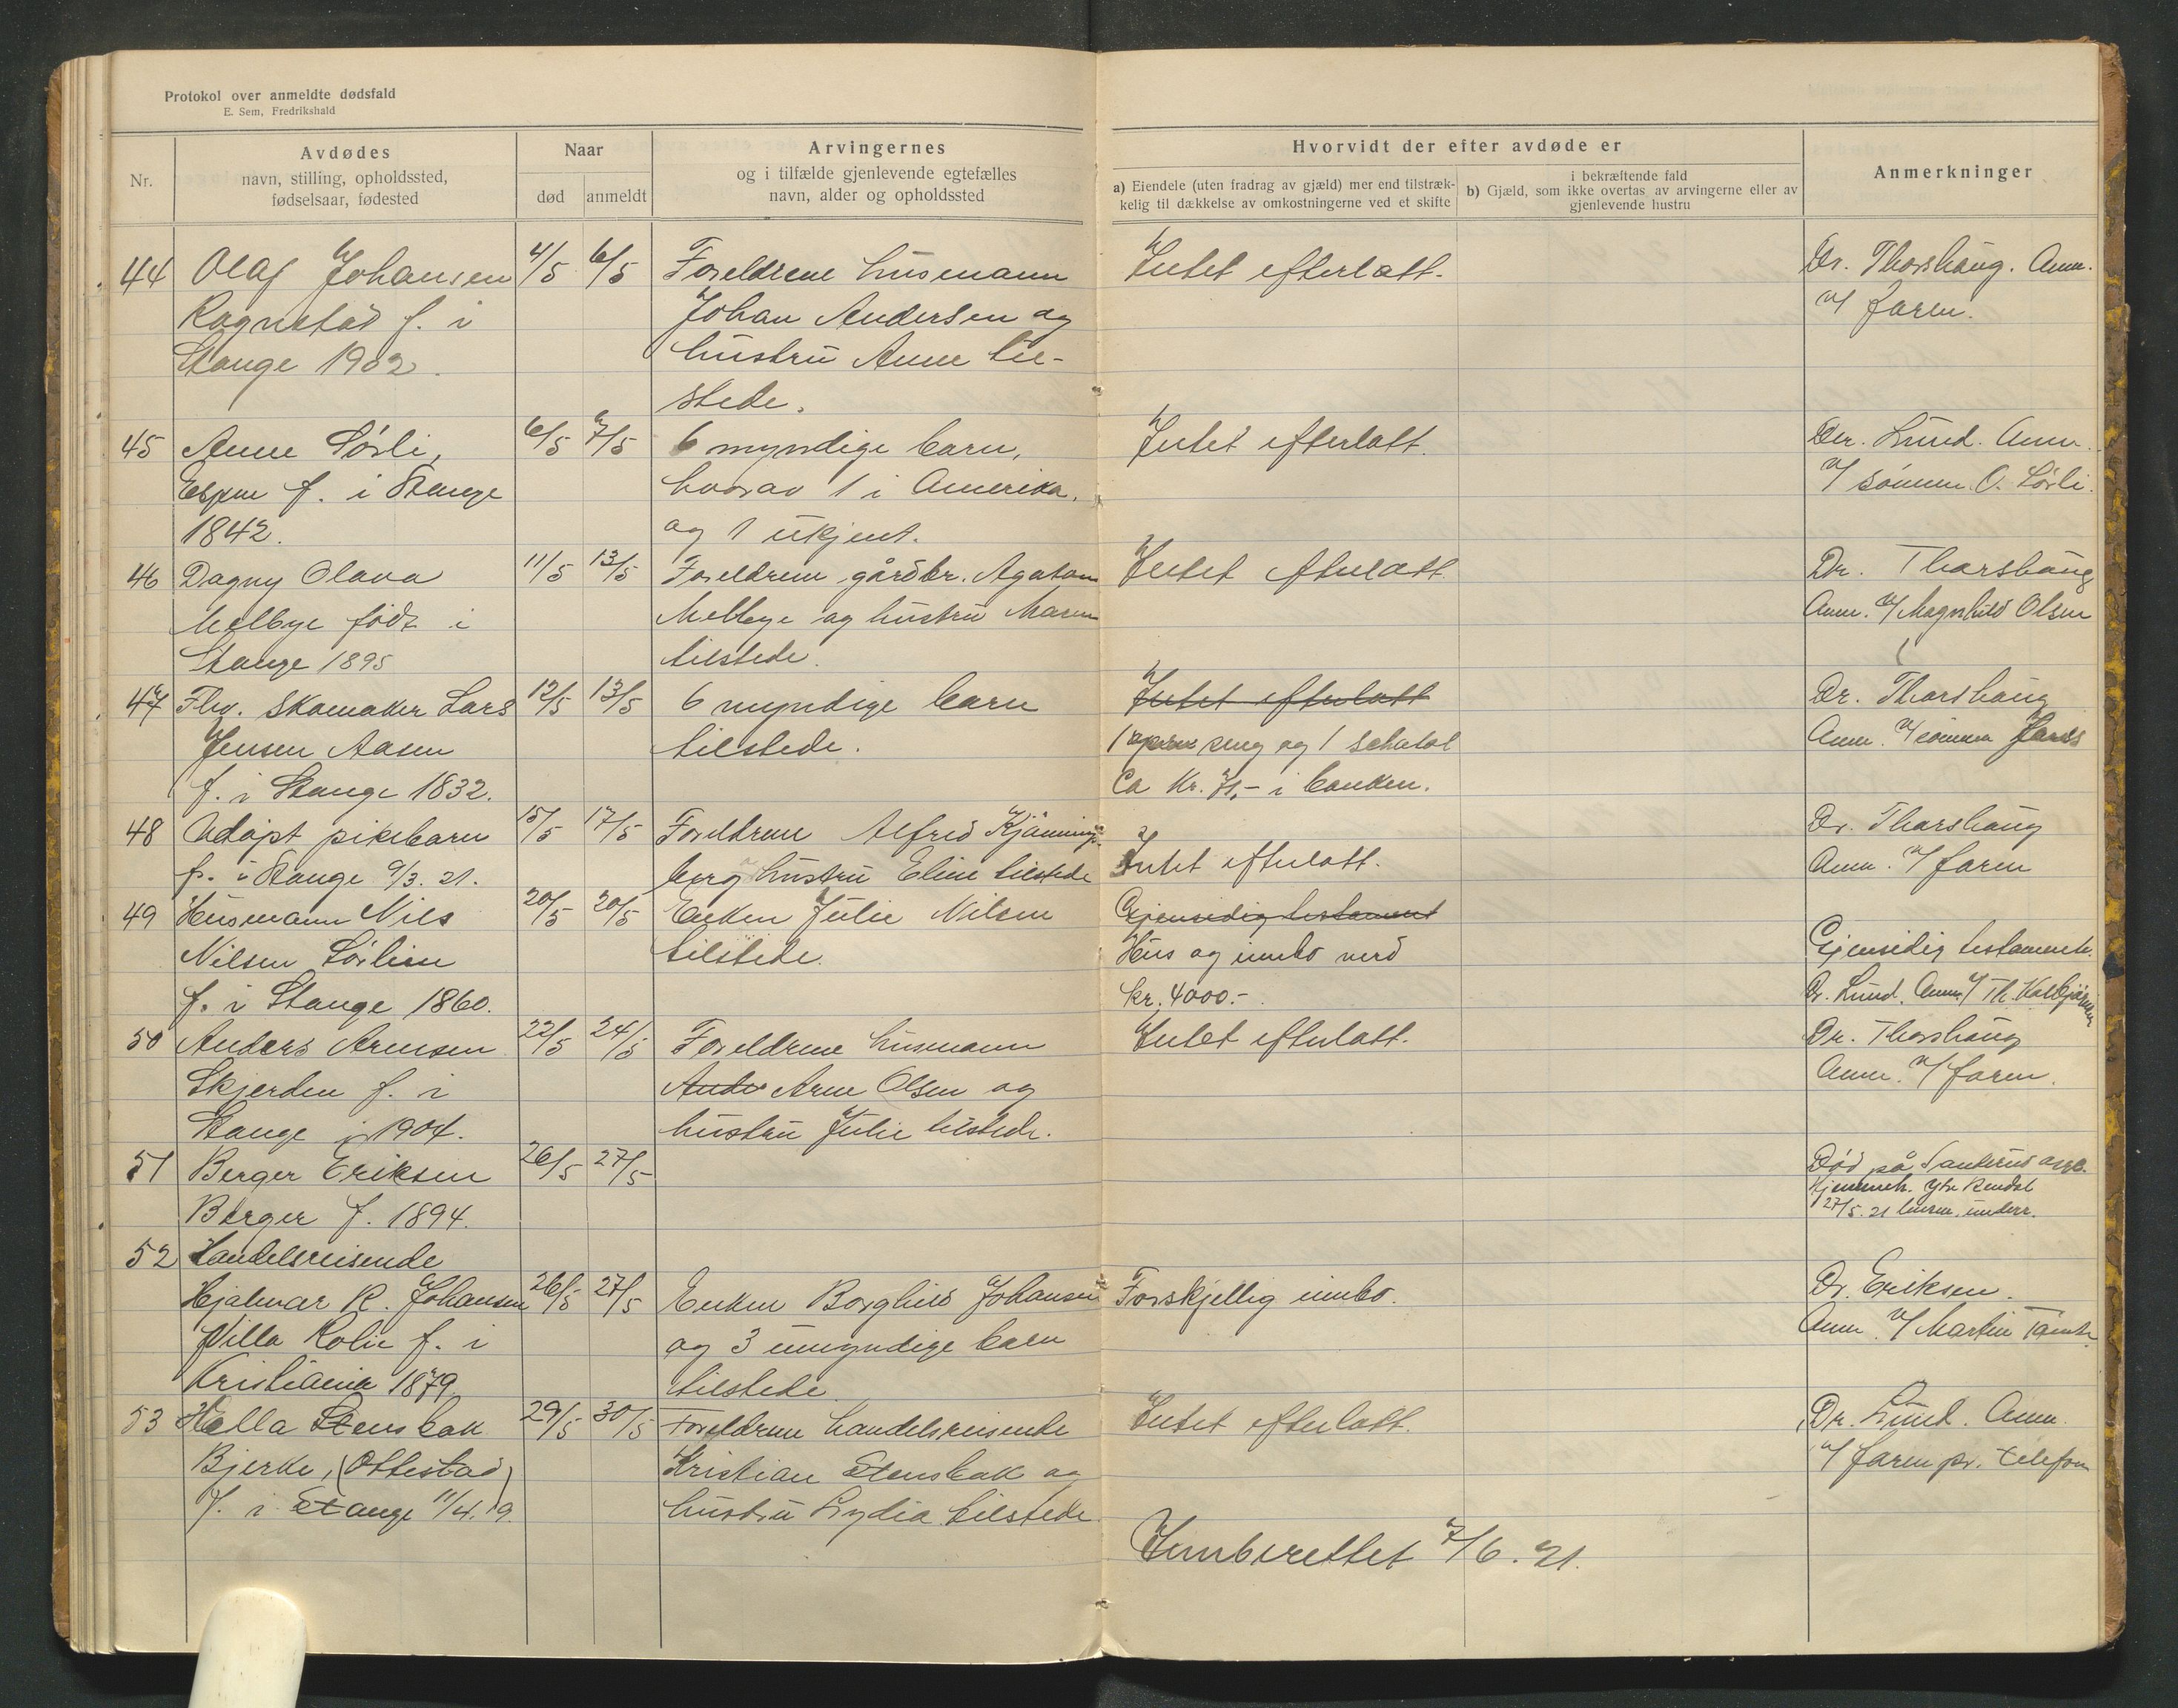 Protokol over anmeldte dødsfald
E. Sem, Fredrikshald
Nr.
Avdødes
navn, stilling, opholdssted,
fødselsaar, fødested
Naar
død anmeldt
Arvingernes
og i tilfælde gjenlevende egtefælles
navn, alder og opholdssted
Hvorvidt der efter avdøde er
a) Eiendele (uten fradrag av gjæld) mer end tilstræk-
kelig til dækkelse av omkostningerne ved et skifte
i bekræftende fald
b) Gjæld, som ikke overtas av arvingerne eller av
gjenlevende hustru
Anmerkninger
44 Olaf Johansen 4/5 6/5 Foreldrene husmann Intet efterlatt. Dr. Thorshaug. Anm.
Rognstad f. i Johan Andersen og v/ faren.
Stange 1902. hustru Anne til-
stede.
45 Anne Sørli, 6/5 7/5 6 myndige barn, Intet efterlatt. Dr. Lund. Anm.
Espen f. i Stange hvorav 1 i Amerika, v/ sønnen O. Sørli.
1842. og 1 ukjent.
46 Dagny Olava 11/5 13/5 Foreldrene gårdbr. Agaton Intet efterlatt. Dr. Thorshaug
Melbye født i Melbye og hustru Maren Anm. v/ Magnhild Olsen
Stange 1895 tilstede.
47 Fhv. Skomaker Lars 12/5 13/5 6 myndige barn Intet efterlatt Dr. Thorshaug
Jensen Aasen tilstede. 1 seng og 1 schatol Anm. v/ sønnen
f. i Stange 1832. Ca Kr. 71,- i banken.
48 Udøpt pikebarn 15/5 17/5 Foreldrene Alfred Kjønnings- Dr. Thorshaug
f. i Stange 9/3. 21. berg hustru Eline tilstede Intet efterlatt. Anm. v/ faren
49 Husmann Nils 20/5 20/5 Enken Julie Nilsen Gjensidig testament
Nilsen Sørlien tilstede. Hus og innbo verd Gjensidig testamente.
f. i Stange 1860. kr. 4000.- Dr. Lund. Anm. v/ Th.
50 Anders Arnesen 22/5 24/5 Foreldrene husmann Intet efterlatt. Dr. Thorshaug
Skjerden f. i Ande Arne Olsen og Anm. v/ faren.
Stange i 1904. hustru Julie tilstede.
51 Berger Eriksen 26/5 27/5 Død på Sanderud asyl.
Berger f. 1894. Hjemmeh. Ytre Rendal
27/5. 21 underr.
52 Handelsreisende
Hjalmar R. Johansen 26/5 27/5 Enken Borghild Johansen Forskjellig innbo. Dr. Eriksen.
Villa Rolie f. i og 3 umyndige barn Anm. v/ Martin
Kristiania 1879. tilstede
53 Hella Stensbak 29/5 30/5 Foreldrene handelsreisende Intet efterlatt. Dr. Lund. Anm.
Bjerke, (Ottestad) Kristian Stensbak og v/ faren pr. telefon
f. i Stange 11/4. 19. hustru Lydia tilstede.
Innberettet 7/6. 21.